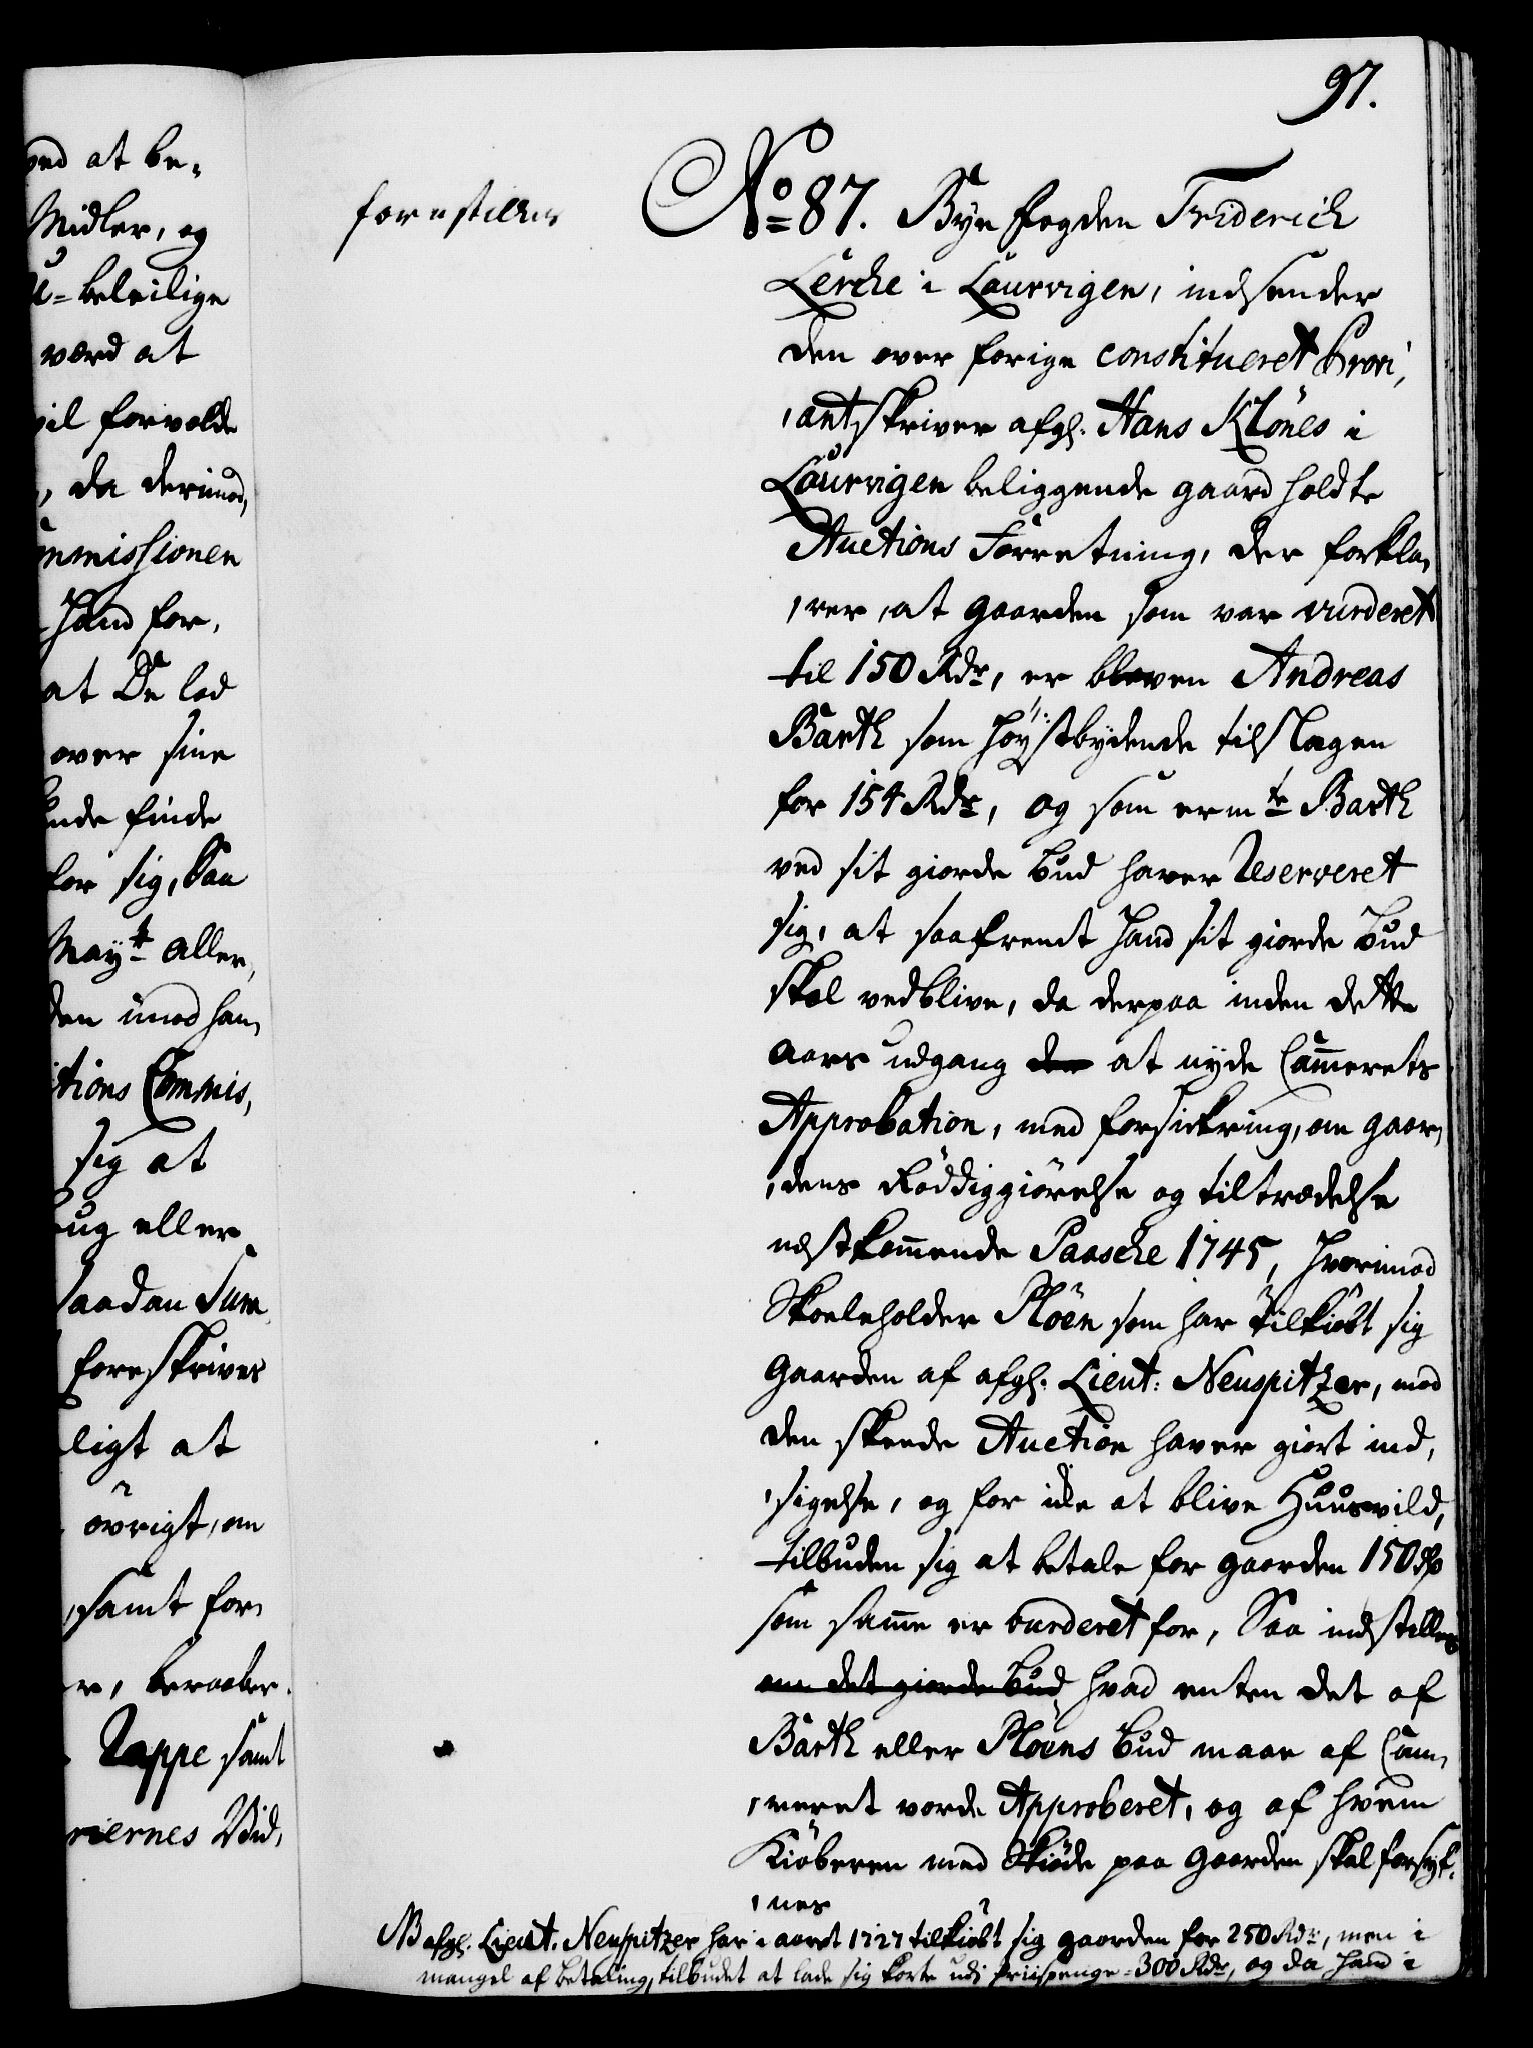 97.
ved at be-
Midler, og
U-beleilige
værd at
vil forvolde
, da derimod,
ommissionen
Hand for,
at De lod
over sine
unde finde
for sig, Saa
May.t aller,
den imod han,
tions Commis,
sig at
bug eller
Saadan Sum,
foreskrives
ligt at
övrigt, om
, samt for,
r, beraaber.
Rappe samt
riernes Vid,
forestilles
No 87. Bye fogden Friderich
Lerche i Laurvigen, indsender
den over forige constitueret Provi,
,antskriver afgl. Hans Klönes i
Laurvigen beliggende gaard holdte
Auctions Forretning, der forkla,
,rer, at gaarden som var vurderet
til 150 Rdr, er bleven Andreas
Barth som höystbydende tilslagen
for 154 Rdr, og som ermte Barth
ved sit giorde bud haver Reserveret
sig, at saafremt Hand sit giorde bud
skal vedblive, da derpaa inden dette
aars udgang der at nyde Camerets
Approbation, med forsickring, om gaar,
,dens Röddiggiörelse og tiltrædelse
nestkommende Paasche 1745, hvorimod
Skoeleholder Plöen som har tilkiöbt sig
gaarden af afgl. Lieut: Neuspitzer, mod
den skeede Auction haver giort ind,
,sigelse, og for icke at blive Huusvild,
tilbuden sig at betale for gaarden 150 Rdr
som samme er vurderet for, Saa indstilles
om det giorde bud hvad enten det af
Barth eller Ploens bud maae af Cam,
,meret vorde Approberet, og af hvem
Kiöberen med Skiöde paa gaarden skal forsyn,
,nes
NB afgl. Lieut. Neuspitzer har i aaret 1727 tilkiöbt sig gaarden for 250 Rdr, men i
mangel af betaling, tilbudet at lade sig korte udi priispenge 300 Rdr, og da hand i